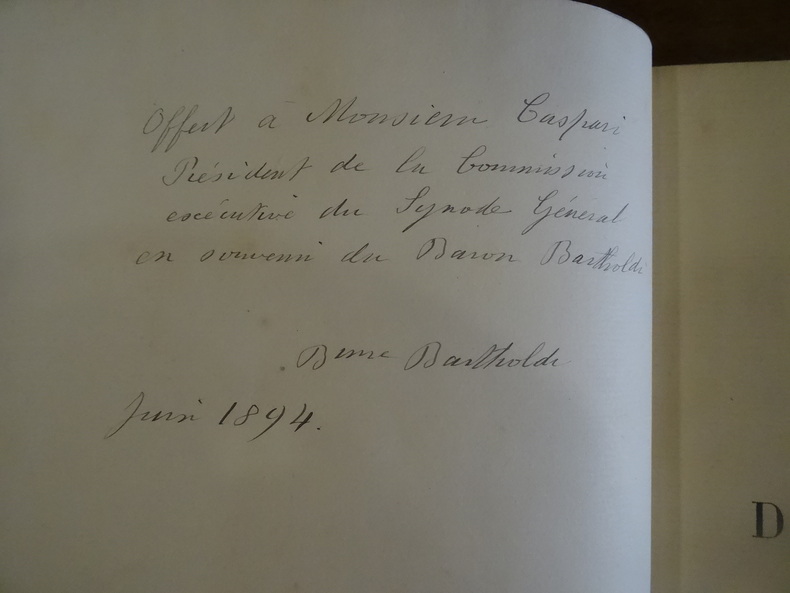 Offert à Monsieur Caspari
Président de la Commission
exécutive du Synode Général
en souvenir du Baron Bartholdi
Bnne Bartholdi
Juin 1894.
D